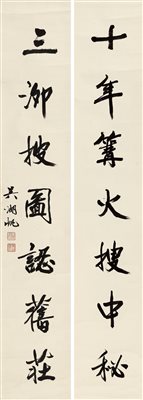 十年篝火搜中秘
三泖披圖認舊莊
吳湖帆